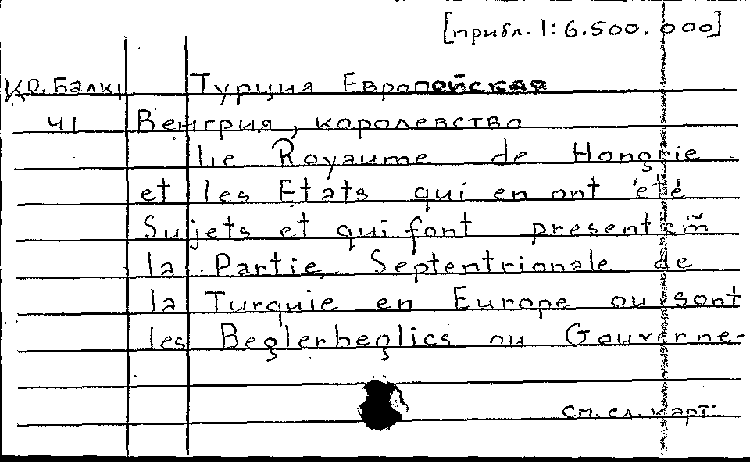 [прибл. 1:6.500.000]
Ко. Балк. Турция Европейская
Ч1 Венгрия, королевство
Le Royaume de Hongrie
et les Etats qui en ont été
Sujets et qui font presentem̃
la Partie Septentrionale de
la Turquie en Europe ou sont
les Beglerbeglics ou Gouverne-
см. сл. карт.